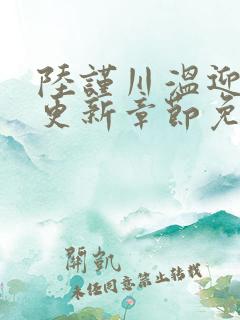 陸謹川溫迎
更新章節免
開凱
未经同意禁止转载